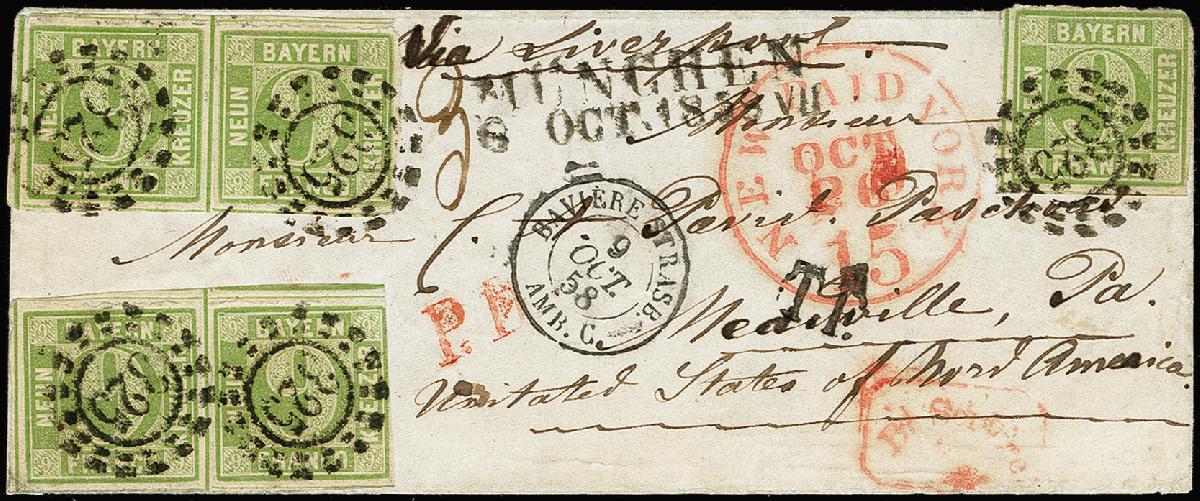 BAYERN
NEUN KREUZER
9
325
BAYERN
NEUN KREUZER
9
325
Via Liverpool
MÜNCHEN
8 OCT. 18 VII
NEW PAID YORK
OCT
26
15
BAYERN
KREUZER
325
Monsieur
Monsieur
C. L. David
BAVIÈRE STRASB.
9
OCT.
58
AMB. C.
P.
Meadville, Pa.
Unitated States of Nord America.
BAYERN
NEUN
9
325
BAYERN
NEUN KREUZER
9
FRANCO
325